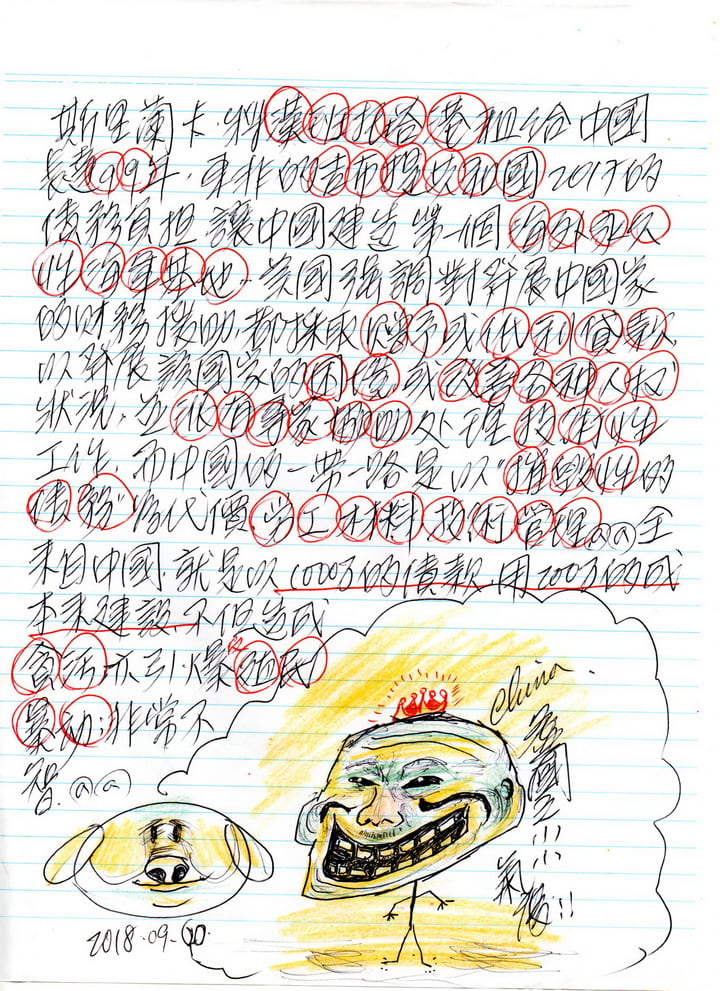 斯里蘭卡.將漢班托塔港租給中國
長達99年.東非的吉布提共和國2017的
債務負担讓中國建造第一個海外永久
性海軍基地.美國強調對發展中國家
的財務援助,都採取贈予或低利貸款,
以發展該國家的困境或改善各種人权
狀況,並派有專家協助处理技術性
工作,而中國的一帶一路是以"摧毀性的
債務"為代價勞工材料技術管理@@全
來自中國.就是以1000万的債款,用200万的成
本來建設.不但造成
貪污亦引爆殖民
暴动;非常不
智.@@
China
愛國
小
氣
!!
2018.09-20.